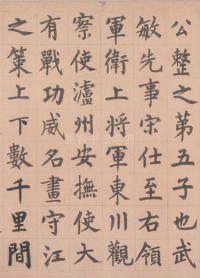 公整之第五子也武
敏先事宋仕至右領
軍衛上將軍東川觀
察使瀘州安撫使大
有戰功威名畫守江
之策上下數千里間